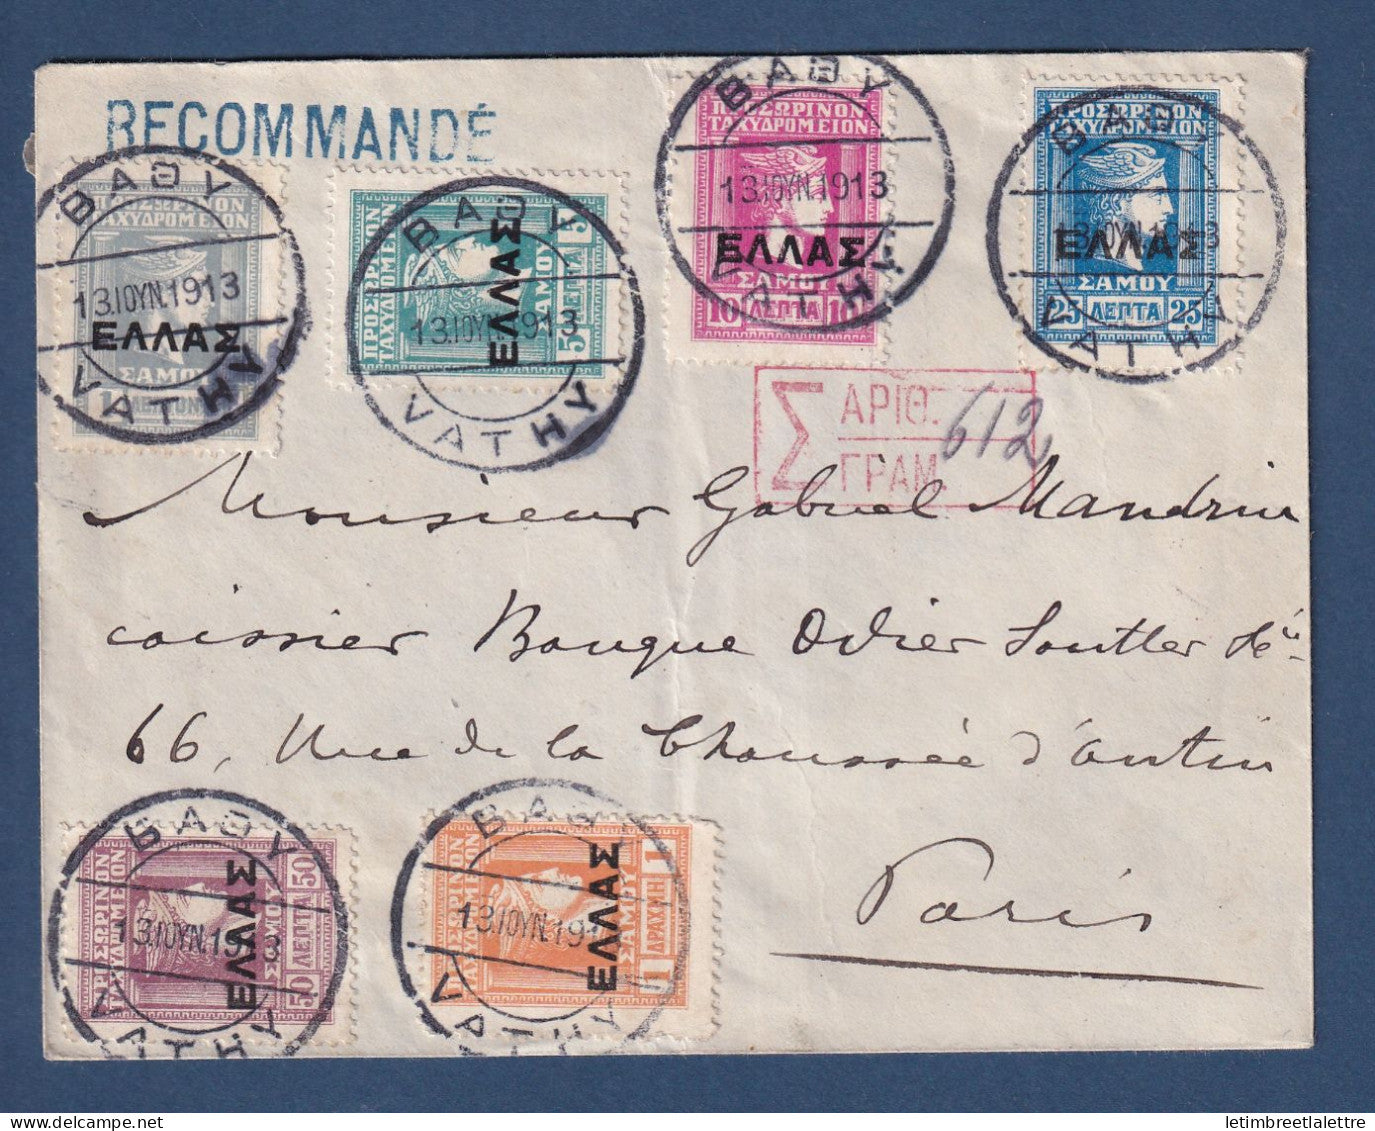 RECOMMANDÉ
ΒΑΘΥ
13.ΙΟΥΝ.1913
VATHY
ΠΡΟΣΩΡΙΝΟΝ
ΤΑΧΥΔΡΟΜΕΙΟΝ
ΕΛΛΑΣ
ΣΑΜΟΥ
1 ΛΕΠΤΟΝ
ΒΑΘΥ
13.ΙΟΥΝ.1913
VATHY
ΠΡΟΣΩΡΙΝΟΝ
ΤΑΧΥΔΡΟΜΕΙΟΝ
ΕΛΛΑΣ
ΣΑΜΟΥ
5 ΛΕΠΤΑ 5
ΒΑΘΥ
13.ΙΟΥΝ.1913
VATHY
ΠΡΟΣΩΡΙΝΟΝ
ΤΑΧΥΔΡΟΜΕΙΟΝ
ΕΛΛΑΣ
ΣΑΜΟΥ
10 ΛΕΠΤΑ 10
ΒΑΘΥ
13.ΙΟΥΝ.1913
VATHY
ΠΡΟΣΩΡΙΝΟΝ
ΤΑΧΥΔΡΟΜΕΙΟΝ
ΕΛΛΑΣ
ΣΑΜΟΥ
25 ΛΕΠΤΑ 25
Σ ΑΡΙΘ. 612
ΓΡΑΜ.
Monsieur Gabriel Mandrin
caissier Banque Odier Sautter & Cie
66, Rue de la Chaussée d'antin
Paris
ΒΑΘΥ
13.ΙΟΥΝ.1913
VATHY
ΠΡΟΣΩΡΙΝΟΝ
ΤΑΧΥΔΡΟΜΕΙΟΝ
ΕΛΛΑΣ
ΣΑΜΟΥ
50 ΛΕΠΤΑ 50
ΒΑΘΥ
13.ΙΟΥΝ.191
VATHY
ΠΡΟΣΩΡΙΝΟΝ
ΤΑΧΥΔΡΟΜΕΙΟΝ
ΕΛΛΑΣ
ΣΑΜΟΥ
1 ΔΡΑΧΜΗ 1
letimbreetlalettre